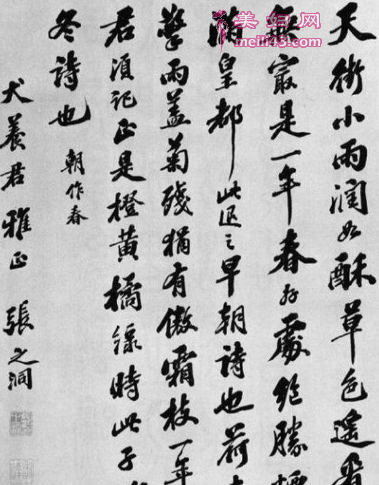 meili43.com
天街小雨潤如酥草色遥看
無最是一年春好處絶勝
滿皇都此退之早朝詩也荷
擎雨蓋菊殘猶有傲霜枝一年
君須記正是橙黄橘綠時此子
冬詩也 朝作春
犬養君雅正 張之洞